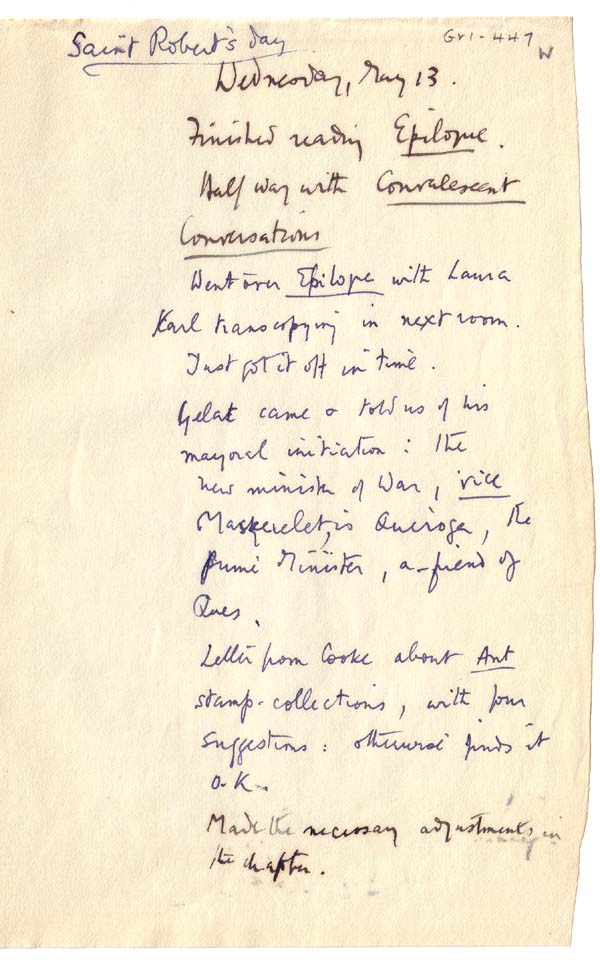 Saint Robert's day
Gr1-447
W
Wednesday, May 13.
Finished reading Epilogue.
Half way with Convalescent
Conversations
Went over Epilogue with Laura
Karl transcopying in next room.
Just got it off in time.
Gelat came & told us of his
mayoral initiation: the
new minister of War, vice
Masquelet, is Quiroga, the
Prime Minister, a friend of
Ques.
Letter from Cooke about Ant
stamp-collections, with four
suggestions: otherwise finds it
O.K.
Made the necessary adjustments in
the chapter.